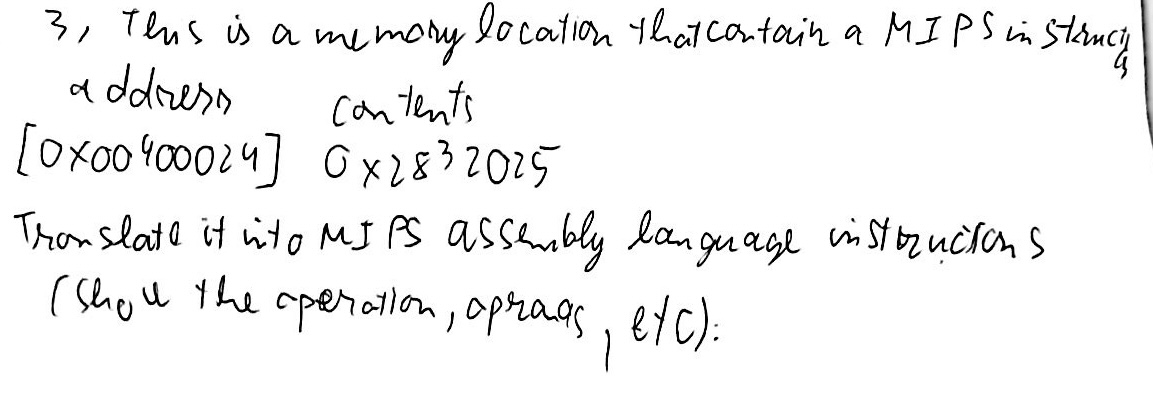 3, This is a memory location that contain a MIPS instructi
address contents
[0x00400024] 0x2832025
Translate it into MIPS assembly language instructions
(show the operation, oprands, etc):